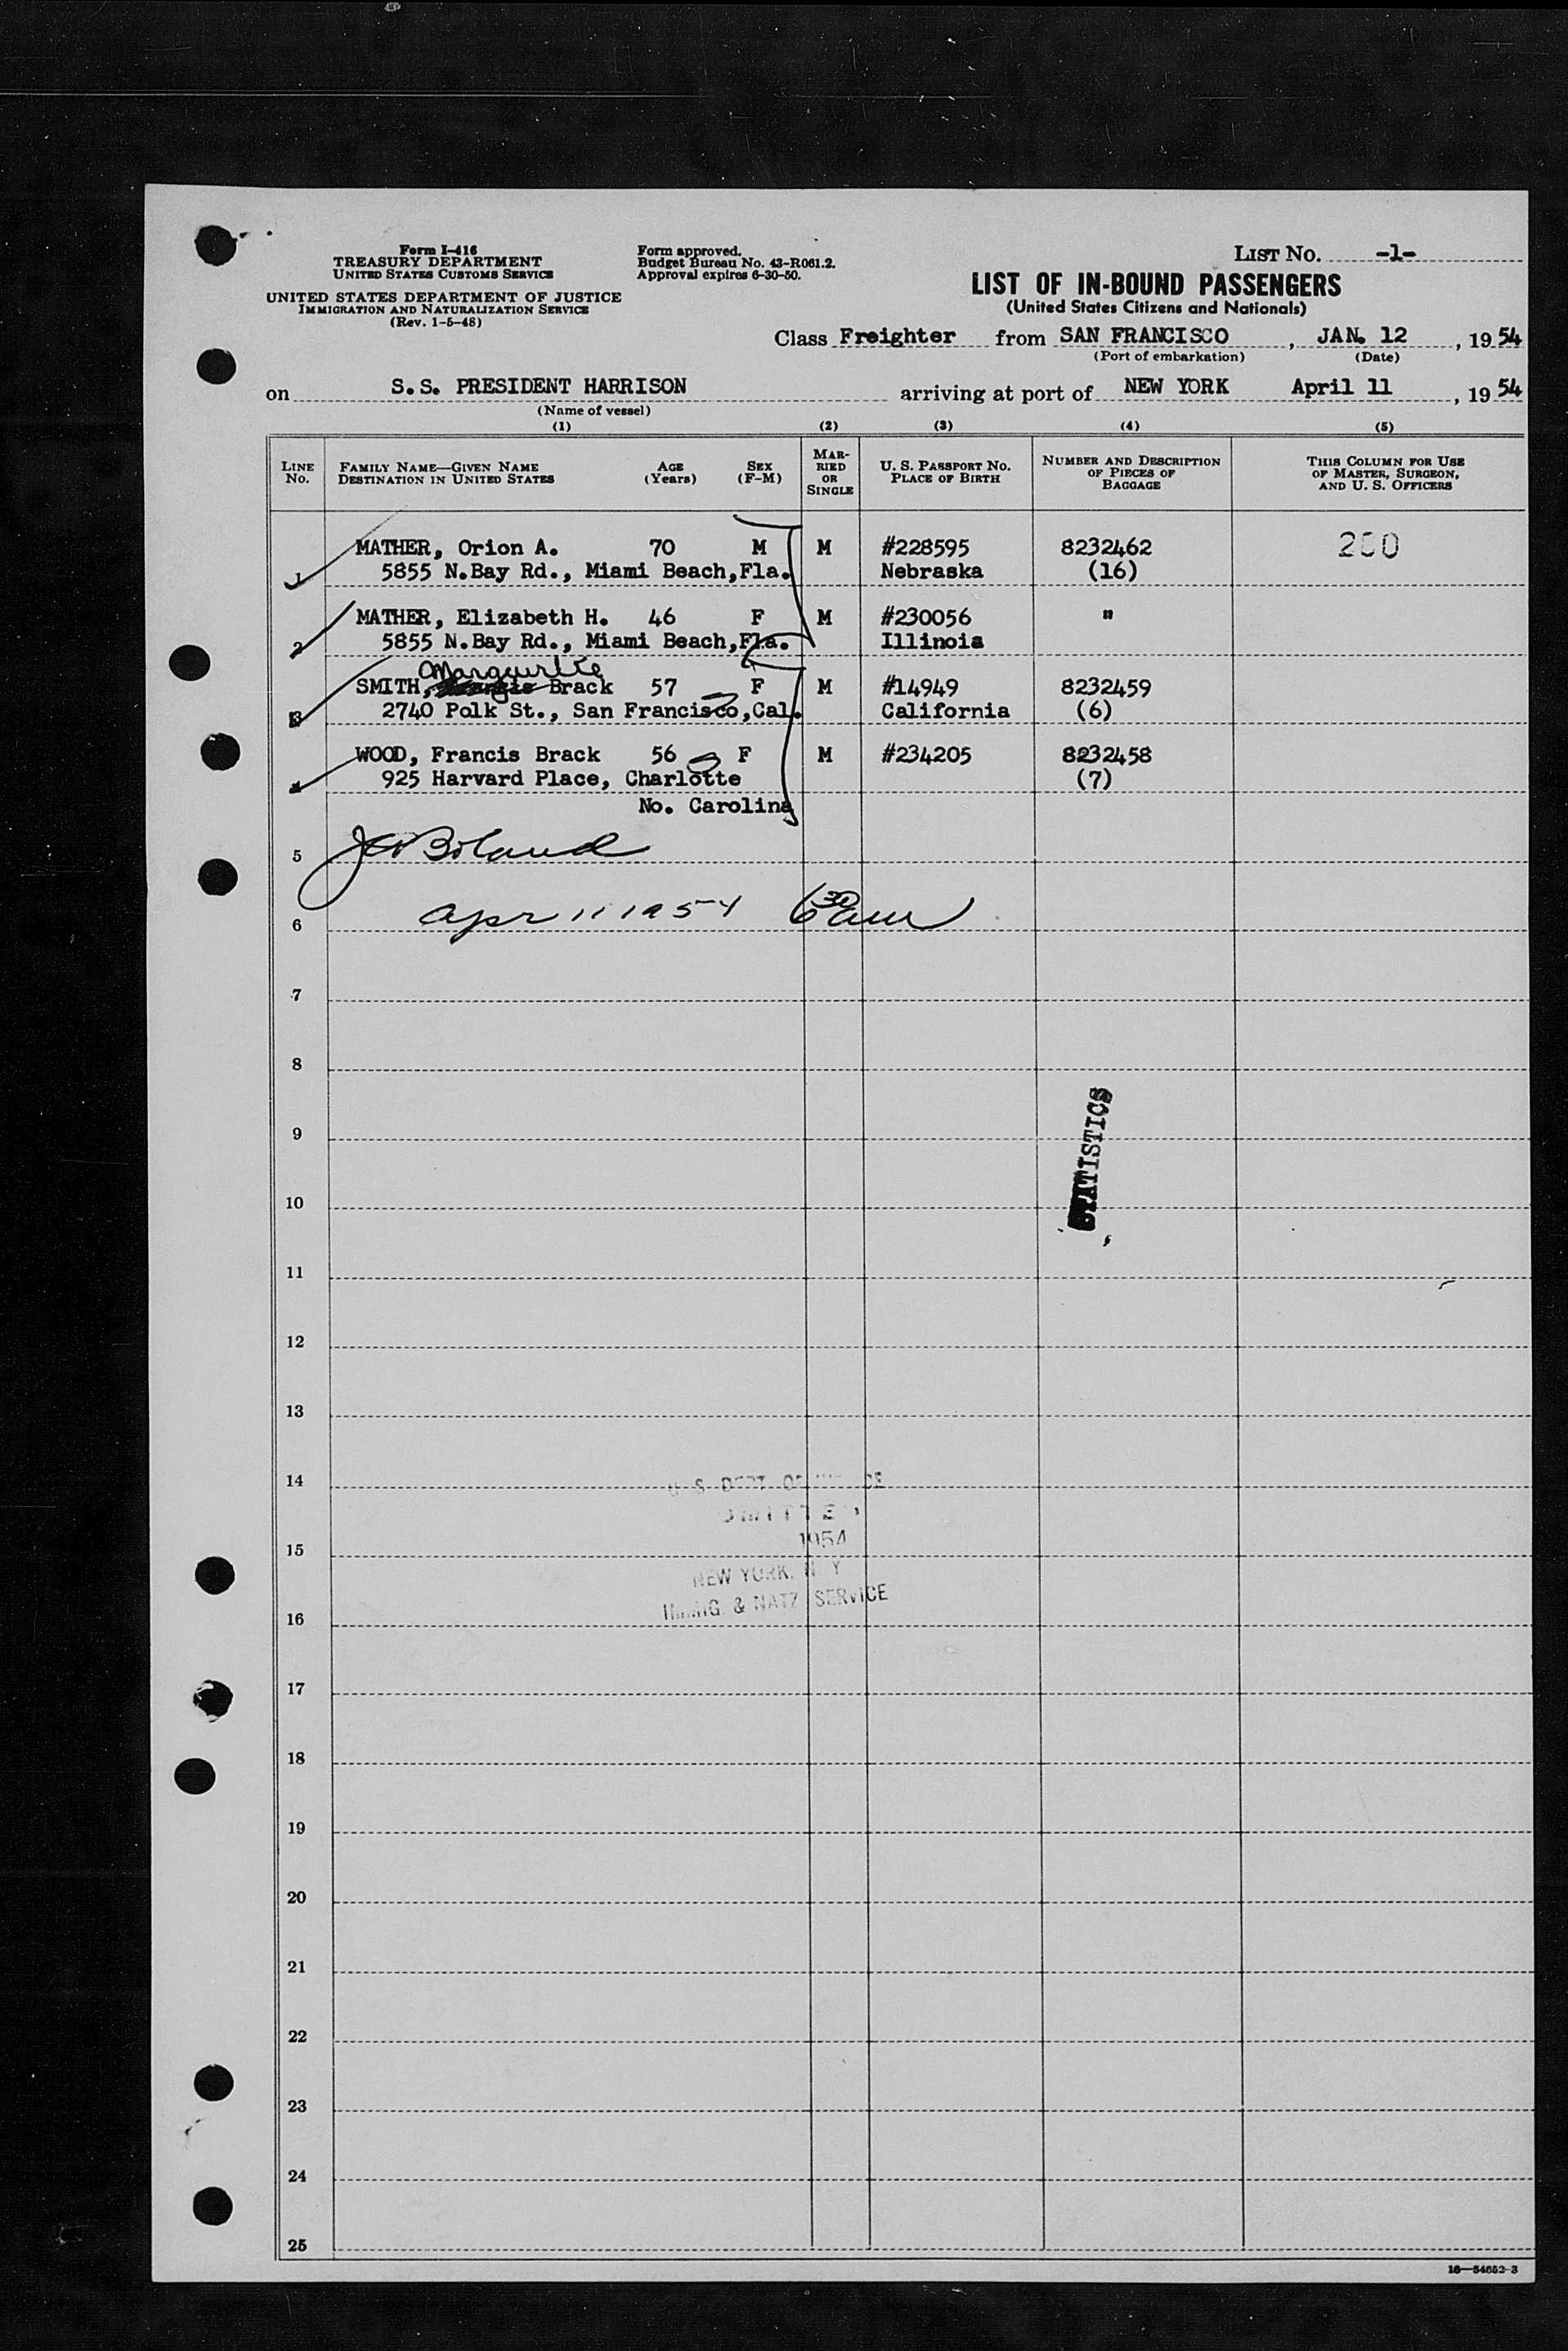 Form I-416
TREASURY DEPARTMENT
UNITED STATES CUSTOMS SERVICE
UNITED STATES DEPARTMENT OF JUSTICE
IMMIGRATION AND NATURALIZATION SERVICE
(Rev. 1-5-48)
Form approved.
Budget Bureau No. 43-R061.2.
Approval expires 6-30-50.
LIST No. -1-
LIST OF IN-BOUND PASSENGERS
(United States Citizens and Nationals)
Class Freighter from SAN FRANCISCO, JAN. 12, 1954
(Port of embarkation) (Date)
on S.S. PRESIDENT HARRISON arriving at port of NEW YORK April 11, 1954
(Name of vessel)
(1) (2) (3) (4) (5)
LINE No.
FAMILY NAME—GIVEN NAME
DESTINATION IN UNITED STATES
AGE (Years)
SEX (F-M)
MARRIED OR SINGLE
U. S. PASSPORT NO.
PLACE OF BIRTH
NUMBER AND DESCRIPTION OF PIECES OF BAGGAGE
THIS COLUMN FOR USE OF MASTER, SURGEON, AND U. S. OFFICERS
MATHER, Orion A. 70 M M #228595 8232462 200
1 5855 N.Bay Rd., Miami Beach,Fla. Nebraska (16)
MATHER, Elizabeth H. 46 F M #230056 "
2 5855 N.Bay Rd., Miami Beach,Fla. Illinois
Marguerite
SMITH, Brack 57 F M #14949 8232459
3 2740 Polk St., San Francisco,Cal. California (6)
WOOD, Francis Brack 56 F M #234205 8232458
4 925 Harvard Place, Charlotte (7)
No. Carolina
5 Boland
6 Apr 11 1954 6 30 am
7
8
9
STATISTICS
10
11
12
13
14
U S DEPT
15
1954
NEW YORK, N Y
16
& NATZ SERVICE
17
18
19
20
21
22
23
24
25
16—54652-3